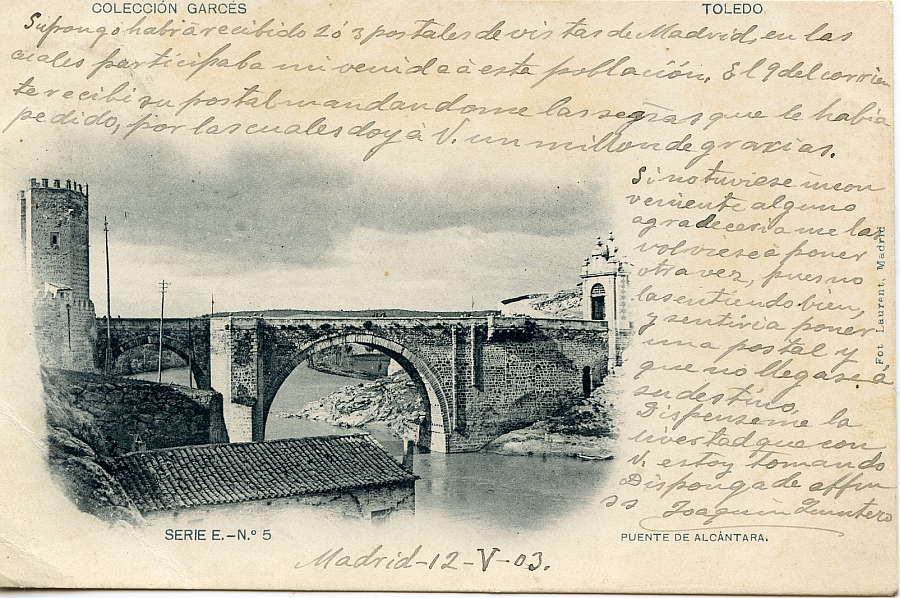 COLECCIÓN GARCÉS
TOLEDO
Supongo habrá recibido 2 ó 3 postales de vistas de Madrid, en las
cuales participaba mi venida á esta población. El 9 del corrien
te recibi su postal mandandome las señas que le habia
pedido, por las cuales doy á V. un millon de gracias.
Si no tuviese incon
veniente alguno
agradeceria me las
volviese á poner
otra vez, pues no
las entiendo bien,
y sentiria poner
una postal y
que no llegase á
su destino.
Dispenseme la
livertad que con
V. estoy tomando
Disponga de affmo
ss Joaquin Quintero
Fot. Laurent, Madrid
SERIE E.-N.º 5
PUENTE DE ALCÁNTARA.
Madrid-12-V-03.